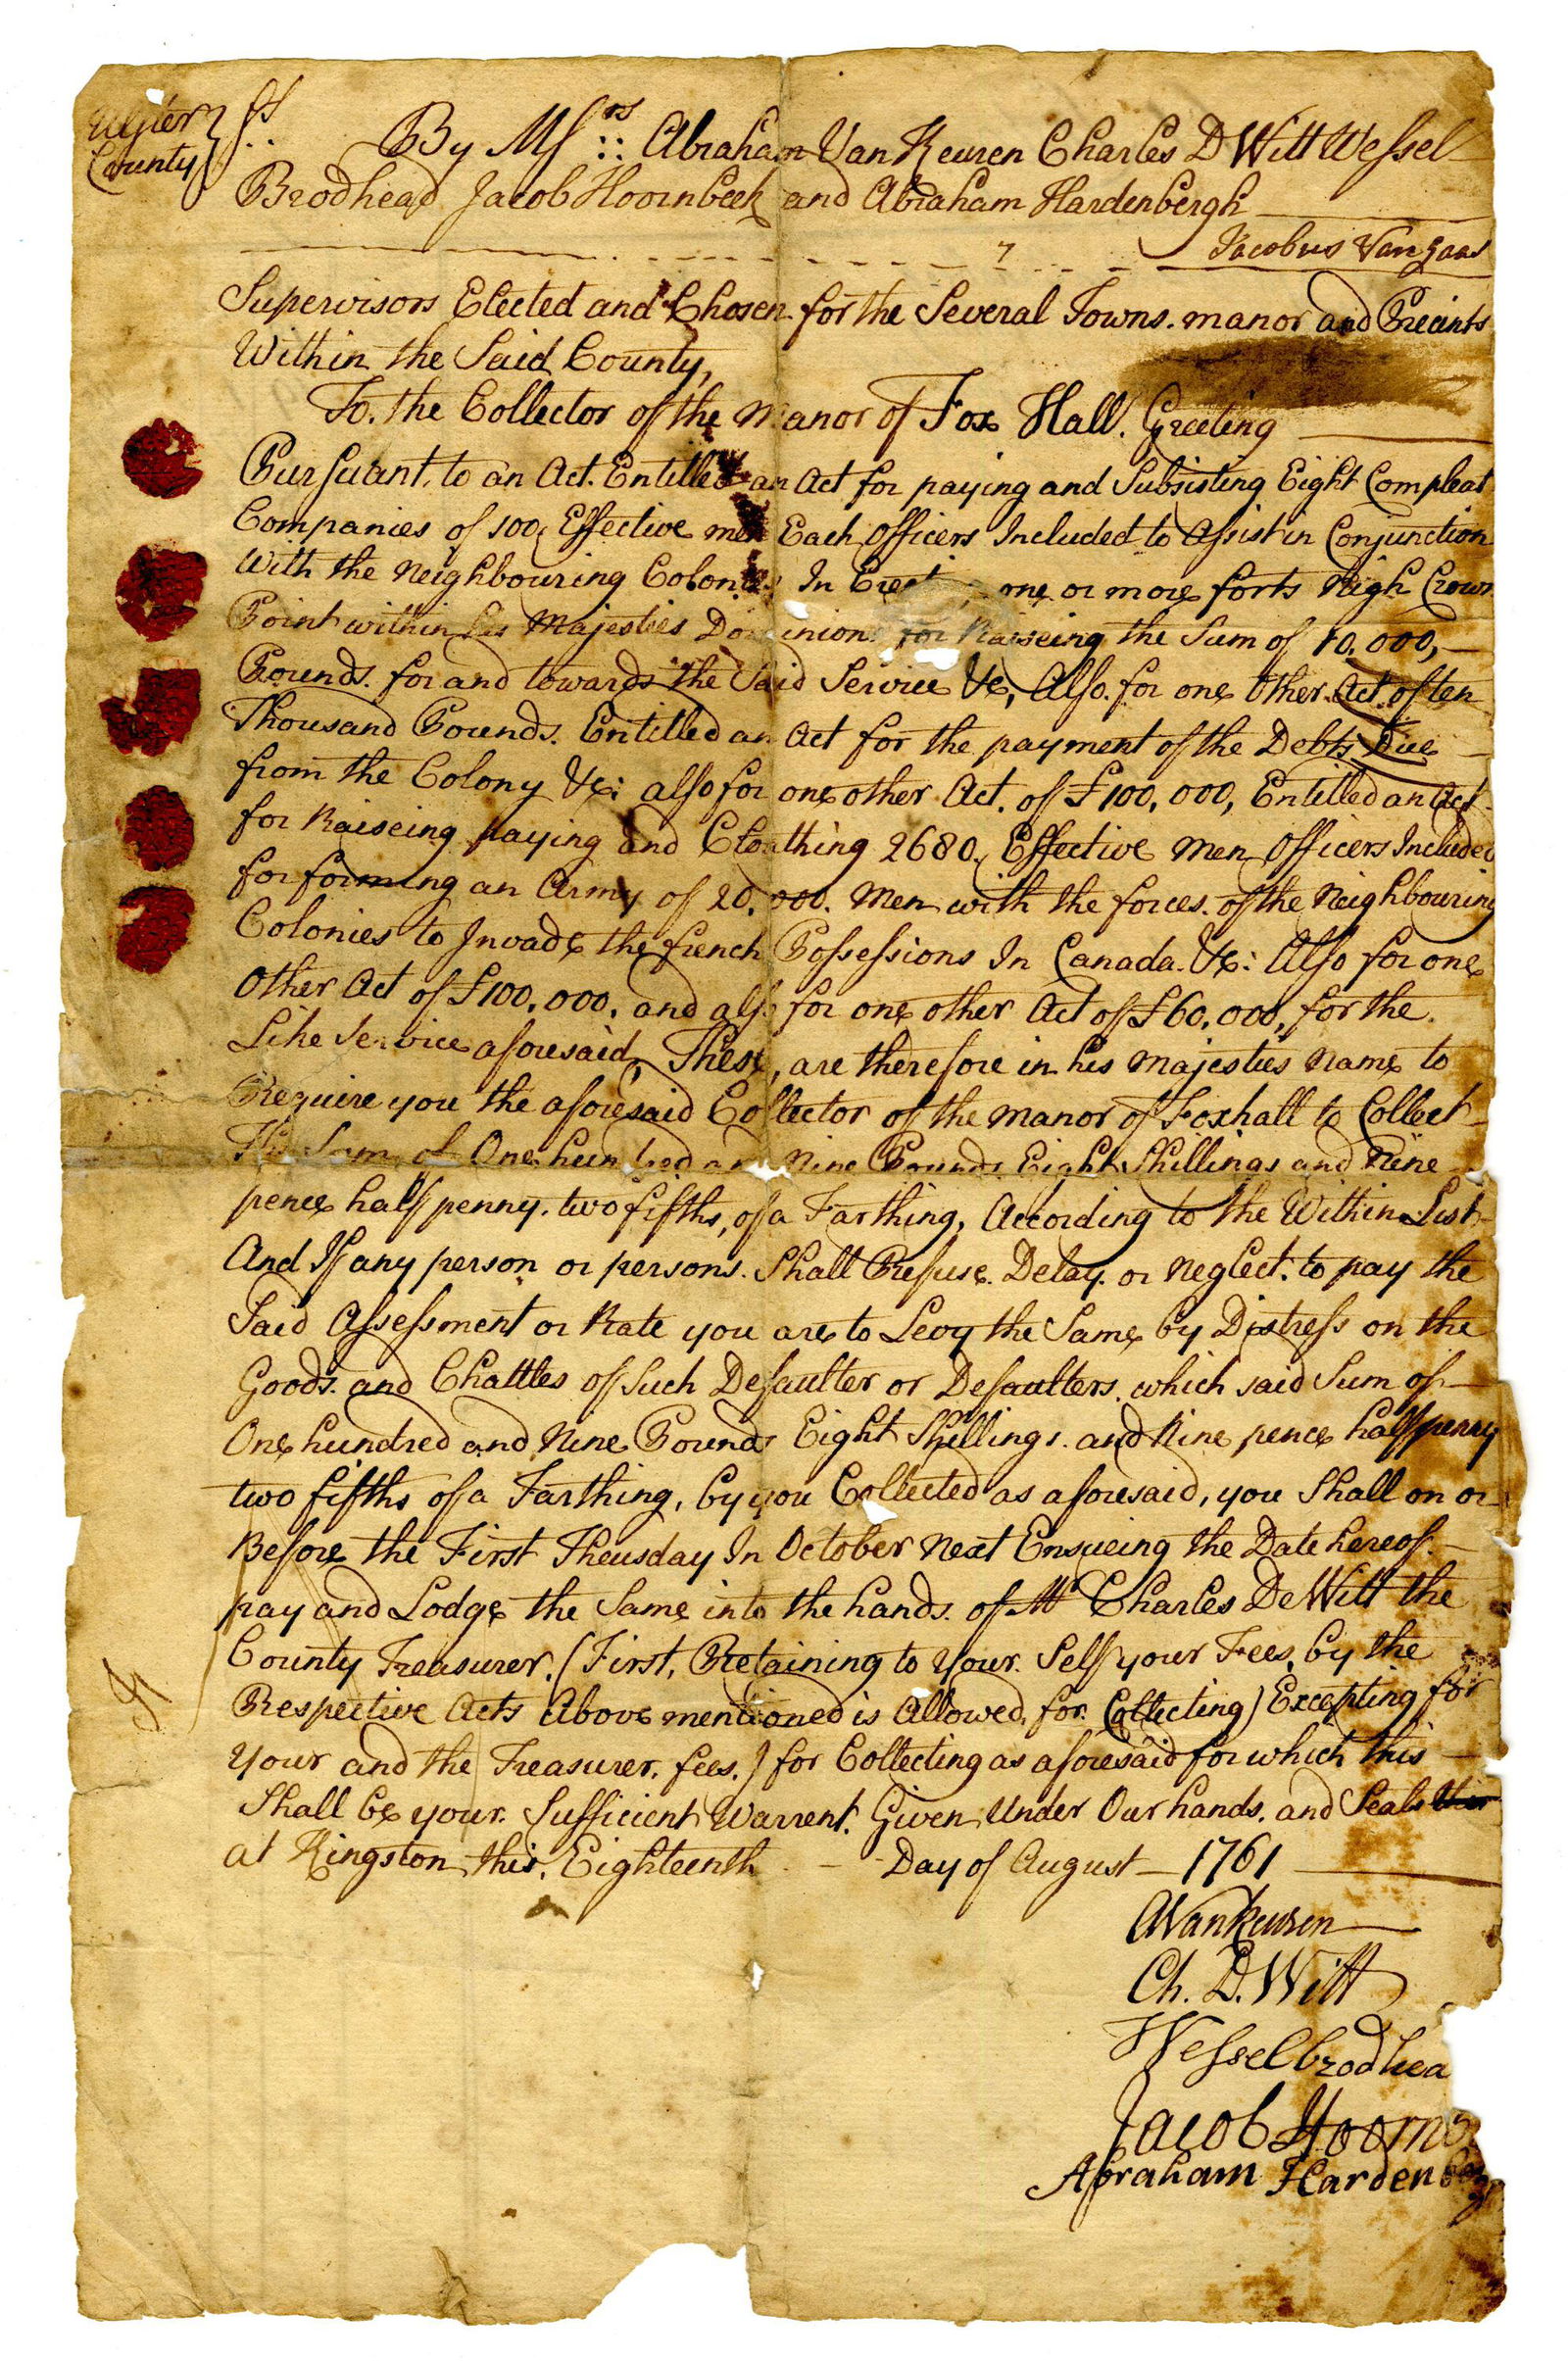 Ulster County } ss.
By Mssrs :: Abraham Van Keuren Charles D Witt Wessel
Brodhead Jacob Hoornbeek and Abraham Hardenbergh
Jacobus Van
Supervisors Elected and Chosen for the Several Towns. manor and Precints
Within the Said County,
To. the Collector of the Manor of Fox Hall. Greeting
Pursuant, to an Act. Entilled an Act for paying and Subsisting Eight Compleat
Companies of 100, Effective men Each Officers Included to Assist in Conjunction
With the Neighbouring Colonies In one or more forts Nigh Crown
Point within his Majesties Dominions for Raiseing the Sum of 10,000,
Pounds. for and towards the Said Service &c, Also. for one Other. Act. of ten
Thousand Pounds. Entilled an Act for the payment of the Debts Due
from the Colony &c: also for one other Act. of £100,000, Entilled an Act
for Raiseing paying and Cloathing 2680, Effective Men Officers Included
for forming an Army of 20,000. Men with the forces. of the Neighbouring
Colonies to Invade the french Possessions In Canada. &c: Also for one
Other Act of £100,000, and also for one other Act of £60,000, for the
Like Service aforesaid, These, are therefore in his Majesties Name to
Require you the aforesaid Collector of the Manor of Foxhall to Collect
The Sum of One hundred and Nine Pounds Eight Shillings and Nine
pence half penny. two fifths, of a Farthing, According to the Within List
And If any person or persons. Shall Refuse. Delay. or Neglect. to pay the
Said Assessment or Rate you are to Levy the Same by Distress on the
Goods. and Chattles of Such Defaulter or Defaulters. which said Sum of
One hundred and Nine Pounds Eight Shillings. and Nine pence half penny
two fifths of a Farthing, by you Collected as aforesaid, you Shall on or
Before the First Theusday In October Next Ensueing the Date hereof.
pay and Lodge the Same into the hands. of Mr Charles De Witt the
County Treasurer. (First, Retaining to Your. Self your Fees, by the
Respective Acts Above mentioned is Allowed, for. Collecting) Excepting for
Your and the Treasurer. fees.) for Collecting as aforesaid for which this
Shall be your. Sufficient Warrent. Given Under Our hands. and Seals
at Kingston this. Eighteenth Day of August 1761
AVanKeuren
Ch. D. Witt
Wessel brodhea
Jacob Hoornb
Abraham Hardenberg